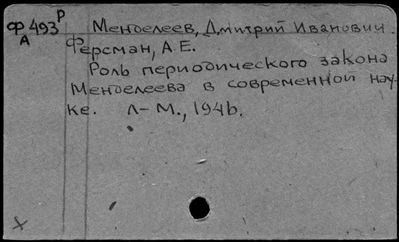 Ф493Р Менделеев, Дмитрий Иванович.
А
Ферсман, А.Е.
Роль периодического закона
Менделеева в современной нау-
ке. Л-М., 1946.